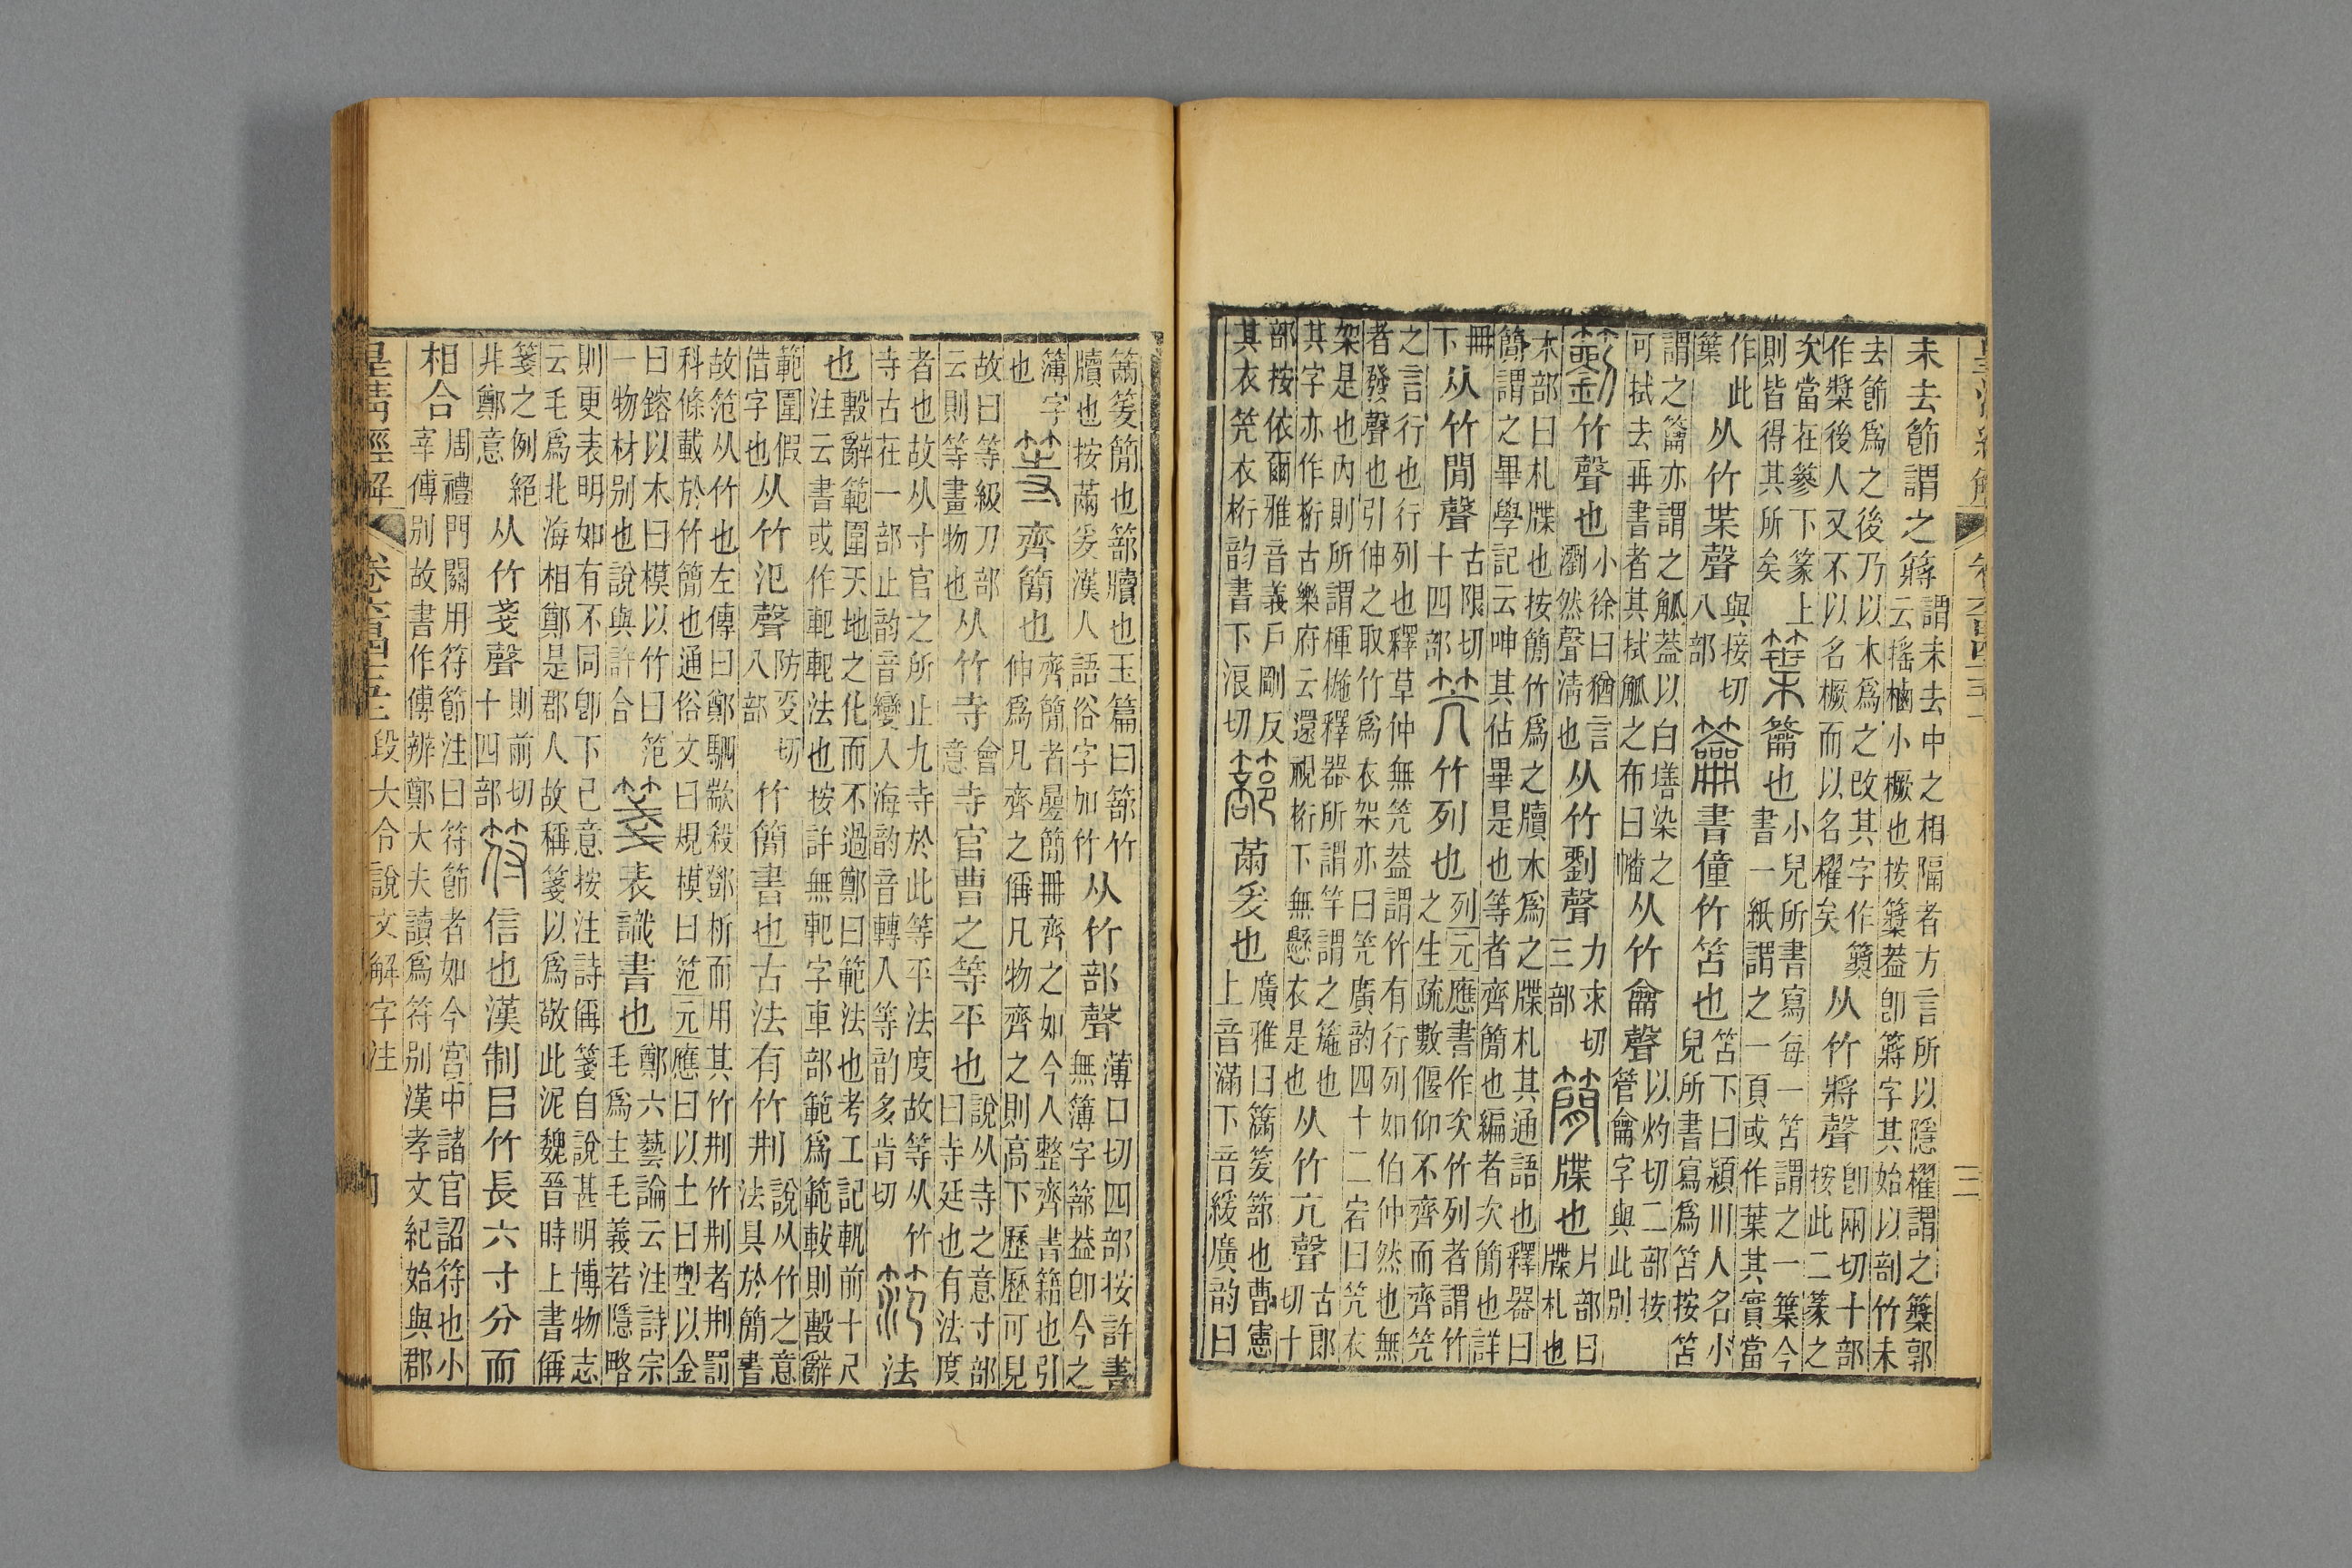 未去節謂之䉃謂未去中之相隔者方言所以隱櫂謂之䉃郭
云搖樐小橛也按䉃葢卽䉃字其始以剖竹未
去節爲之後乃以木爲之改其字作䉃
作槳後人又不以名橛而以名櫂矣从竹將聲卽兩切十部
按此二篆之
次當在篸下篆上
則皆得其所矣䈎籥也小兒所書寫每一笘謂之一䈎今
書一紙謂之一頁或作葉其實當
作此
䈎从竹枼聲與接切
八部籥書僮竹笘也笘下曰潁川人名小
兒所書寫爲笘按笘
謂之籥亦謂之觚葢以白墡染之
可拭去再書者其拭觚之布曰幡从竹龠聲以灼切二部按
管龠字與此別
籀竹聲也小徐曰猶言
瀏然聲淸也从竹劉聲力求切
三部簡牒也片部曰
牒札也
木部曰札牒也按簡竹爲之牘木爲之牒札其通語也釋器曰
簡謂之畢學記云呻其佔畢是也等者齊簡也編者次簡也詳
冊
下从竹閒聲古限切
十四部笐竹列也列元應書作次竹列者謂竹
之生疏數偃仰不齊而齊笐
之言行也行列也釋草仲無笐葢謂竹有行列如伯仲然也無
者發聲也引伸之取竹爲衣架亦曰笐廣韵四十二宕曰笐衣
架是也內則所謂楎椸釋器所謂竿謂之箷也
其字亦作桁古樂府云還視桁下無懸衣是也从竹亢聲古郎
切十
部按依爾雅音義戶剛反
其衣笐衣桁韵書下浪切䈬㒼爰也廣雅曰䉂䈬也曹憲
上音滿下音緩廣韵曰
簡也䈬牘也玉篇曰䈬竹
牘也按㒼爰漢人語俗字加竹从竹部聲薄口切四部按許書
無簿字䈬葢卽今之
簿字
也等齊簡也齊簡者曡簡冊齊之如今人整齊書籍也引
伸爲凡齊之偁凡物齊之則高下歷歷可見
故曰等級刀部
云則等畫物也从竹寺會
意寺官曹之等平也說从寺之意寸部
曰寺廷也有法度
者也故从寸官之所止九寺於此等平法度故等从竹
寺古在一部止韵音變入海韵音轉入等韵多肯切笵法
也㲄辭範圍天地之化而不過鄭曰範法也考工記軓前十尺
注云書或作軓軓法也按許無軓字車部範爲範軷則㲄辭
範圍假
借字也从竹氾聲防叜切
八部竹簡書也古法有竹刑說从竹之意
法具於簡書
故笵从竹也左傳曰鄭駟歂殺鄧析而用其竹刑竹刑者刑罰
科條載於竹簡也通俗文曰規模曰笵元應曰以土曰型以金
曰鎔以木曰模以竹曰笵
一物材別也說與許合箋表識書也鄭六藝論云注詩宗
毛爲主毛義若隱略
則更表明如有不同卽下己意按注詩偁箋自說甚明博物志
云毛爲北海相鄭是郡人故稱箋以爲敬此泥魏晉時上書偁
箋之例絕
非鄭意从竹戔聲則前切
十四部符信也漢制㠯竹長六寸分而
相合周禮門關用符節注曰符節者如今宮中諸官詔符也小
宰傅別故書作傅辨鄭大夫讀爲符別漢孝文紀始與郡
皇淸經解 卷六百四十五 段大令說文解字注